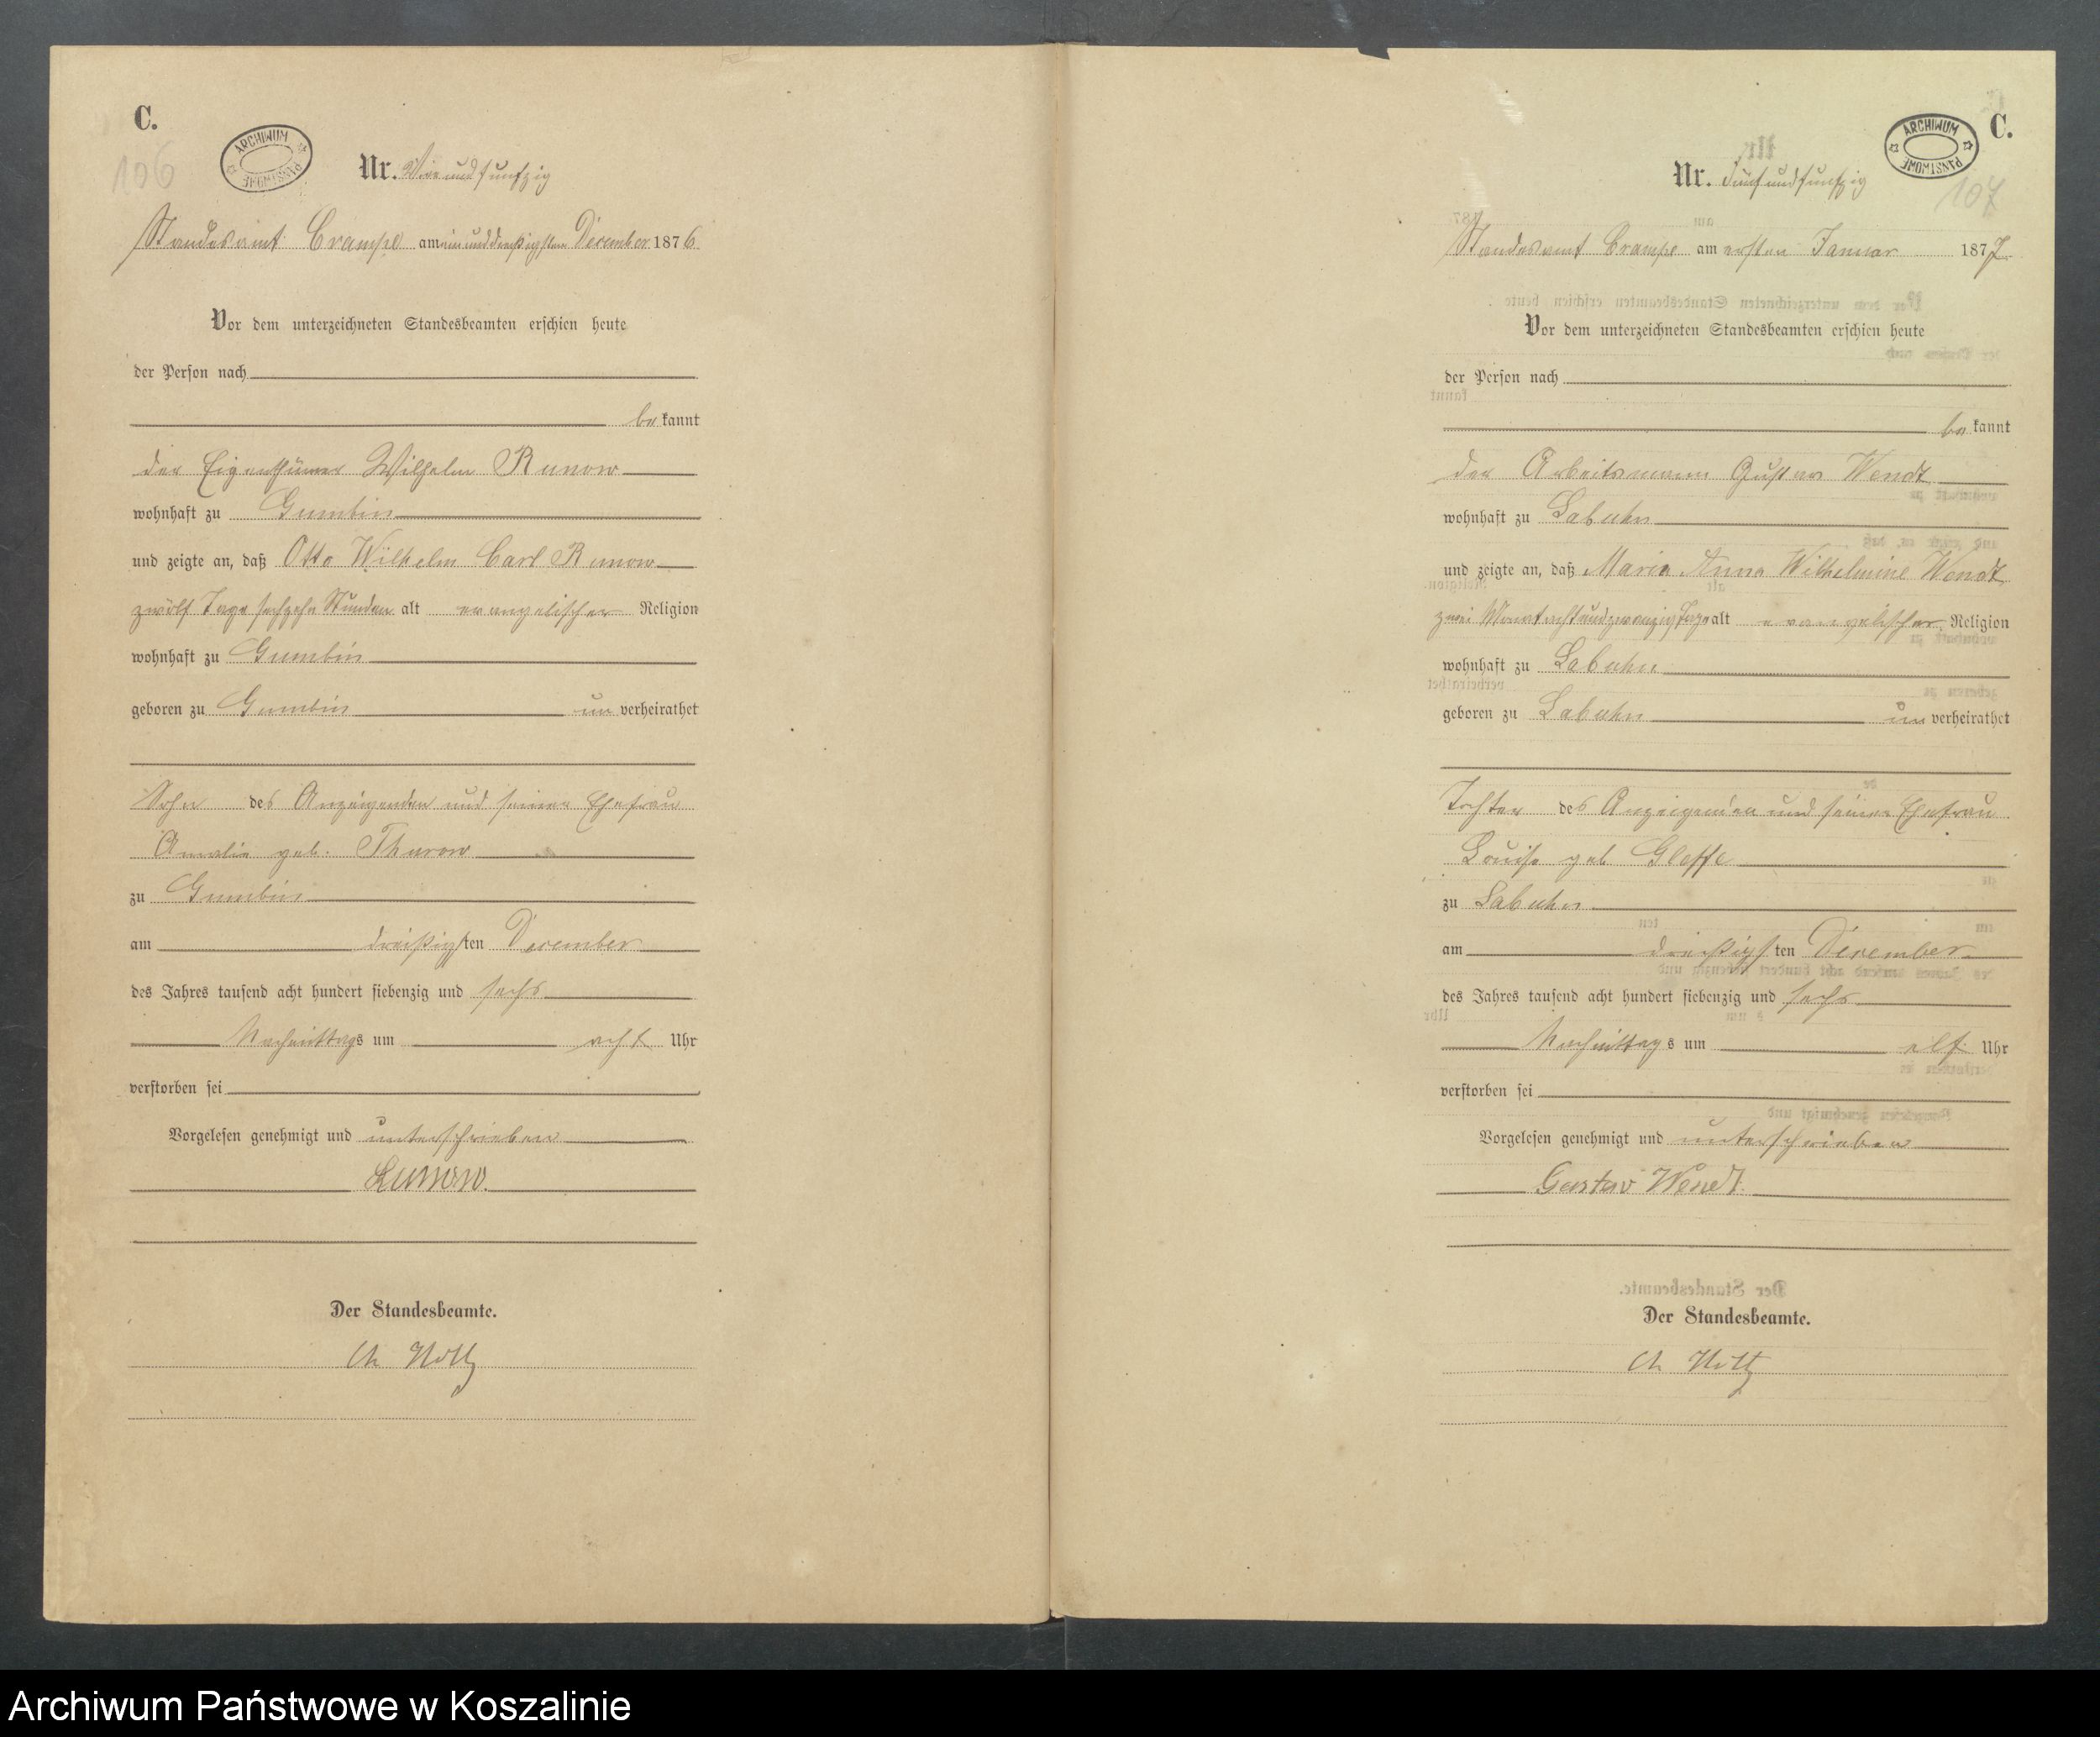 C.
106
ARCHIWUM PAŃSTWOWE
Nr. Vierundfunfzig
Standesamt Crampe am einunddreißigsten December 1876.
Vor dem unterzeichneten Standesbeamten erschien heute
der Person nach
bekannt
der Eigenthümer Wilhelm Runow
wohnhaft zu Gumbin
und zeigte an, daß Otto Wilhelm Carl Runow
zwölf Tage sechzehn Stunden alt evangelischer Religion
wohnhaft zu Gumbin
geboren zu Gumbin unverheirathet
Sohn des Anzeigenden und seiner Ehefrau
Amalie geb. Thurow
zu Gumbin
am dreißigsten December
des Jahres tausend acht hundert siebenzig und sechs
Nachmittags um acht Uhr
verstorben sei
Vorgelesen genehmigt und unterschrieben
Runow.
Der Standesbeamte.
C.
ARCHIWUM PAŃSTWOWE
107
Nr. Fünfundfunfzig
Standesamt Crampe am ersten Januar 1877.
Vor dem unterzeichneten Standesbeamten erschien heute
der Person nach
bekannt
der Arbeitsmann Gustav Wendt
wohnhaft zu Labuhn
und zeigte an, daß Marie Anna Wilhelmine Wendt
zwei Monat achtundzwanzig Tage alt evangelischer Religion
wohnhaft zu Labuhn
geboren zu Labuhn unverheirathet
Tochter des Anzeigenden und seiner Ehefrau
Louise geb.
zu Labuhn
am dreißigsten December
des Jahres tausend acht hundert siebenzig und sechs
Nachmittags um elf Uhr
verstorben sei
Vorgelesen genehmigt und unterschrieben
Gustav Wendt.
Der Standesbeamte.
Archiwum Państwowe w Koszalinie